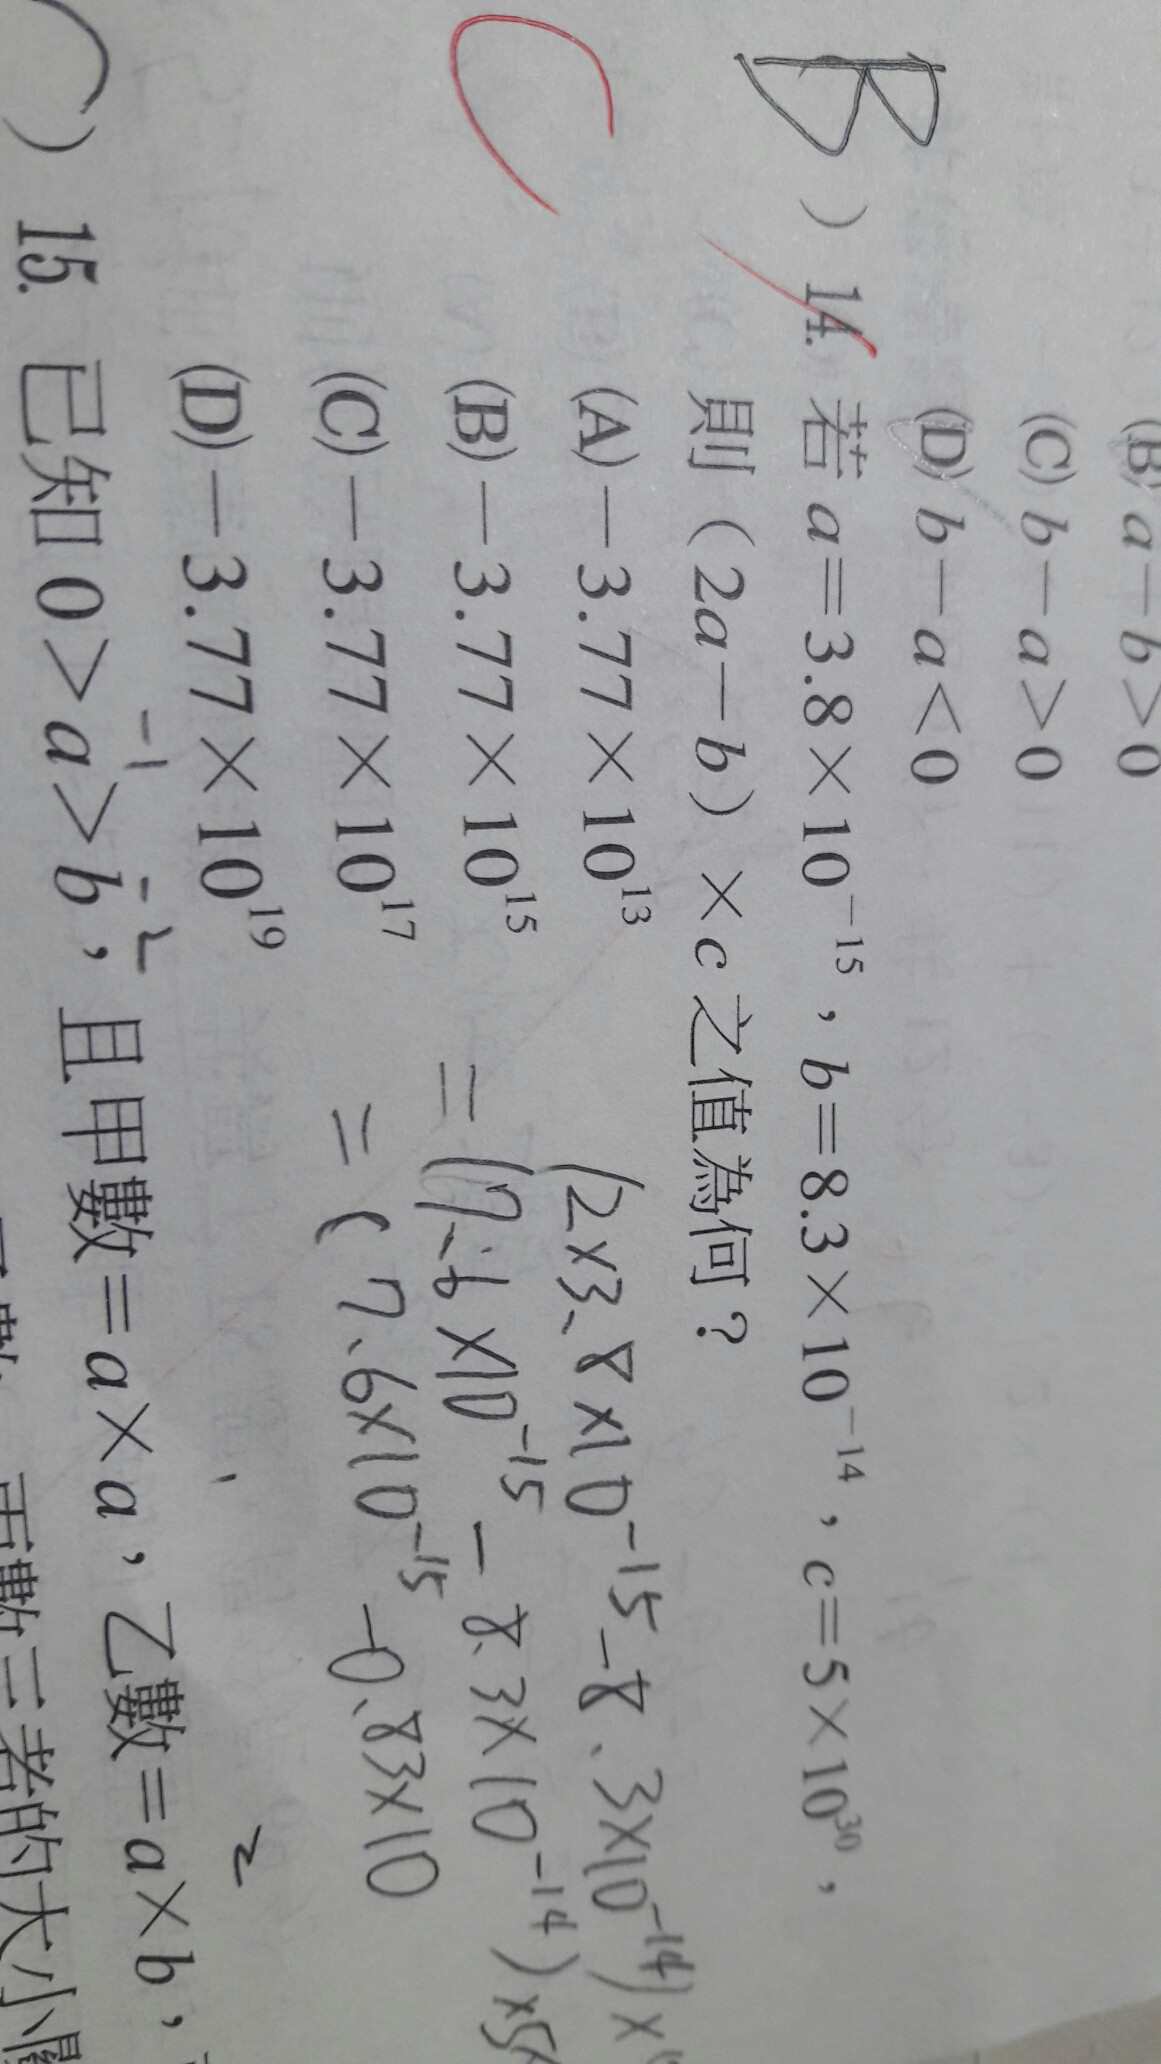 (B) a－b＞0
(C) b－a＞0
(D) b－a＜0
B ) 14. 若 a＝3.8×10⁻¹⁵，b＝8.3×10⁻¹⁴，c＝5×10³⁰，
則（2a－b）×c 之值為何？
C
(A)－3.77×10¹³
(B)－3.77×10¹⁵
(C)－3.77×10¹⁷
(D)－3.77×10¹⁹
(2×3.8×10⁻¹⁵-8.3×10⁻¹⁴)×
=(7.6×10⁻¹⁵-8.3×10⁻¹⁴)×5×
=(7.6×10⁻¹⁵-0.83×10
2
-1 -2
) 15. 已知 0＞a＞b，且甲數＝a×a，乙數＝a×b，
三者的大小關